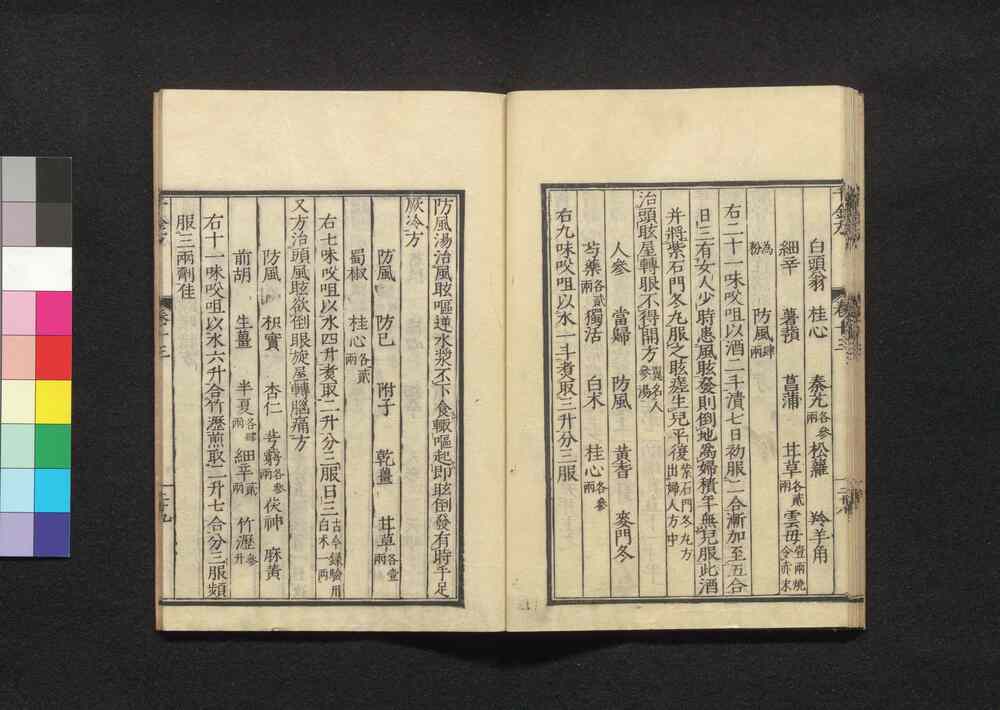 白頭翁 桂心 秦艽各參兩 松羅 羚羊角
細辛 藁本 菖蒲 甘草各貳兩 雲母壹兩燒令赤末
為粉 防風肆兩
右二十一味㕮咀以酒二斗漬七日初服二合漸加至五合
日三有女人少時患風眩發則倒地為婦積年無兒服此酒
并將紫石門冬丸服之眩瘥生兒平復紫石門冬丸方出婦人方中
治頭眩屋轉眼不得開方 參湯
人參 當歸 防風 黃耆 麥門冬
芍藥各貳兩 獨活 白朮 桂心各參兩
右九味㕮咀以水一斗煮取三升分三服
防風湯治風眩嘔逆水漿不下食輒嘔起即眩倒發有時手足
厥冷方
防風 防己 附子 乾薑 甘草各壹兩
蜀椒 桂心各貳兩
右七味㕮咀以水四升煮取二升分三服日三古今錄驗用白朮一兩
又方治頭風眩欲倒眼旋屋轉腦痛方
防風 枳實 杏仁 芎藭各參兩 茯神 麻黃
前胡 生薑 半夏各肆兩 細辛貳兩 竹瀝參升
右十一味㕮咀以水六升合竹瀝煎取二升七合分三服頻
服三兩劑佳